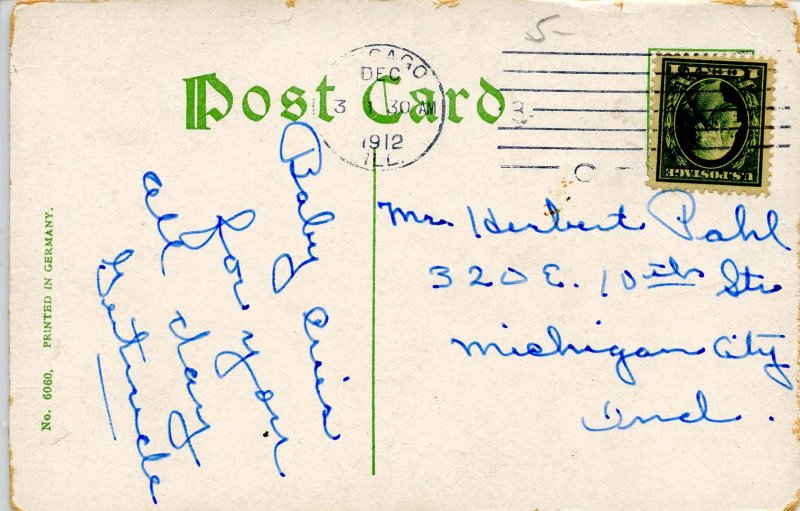 5-
Post Card
CHICAGO
DEC
3 1 30 AM
1912
ILL.
1 CENT 1
U.S. POSTAGE
Baby cries
for you
all day
Gertrude
Mr. Herbert Pahl
320 E. 10th Str
Michigan City
Ind.
No. 6060. PRINTED IN GERMANY.